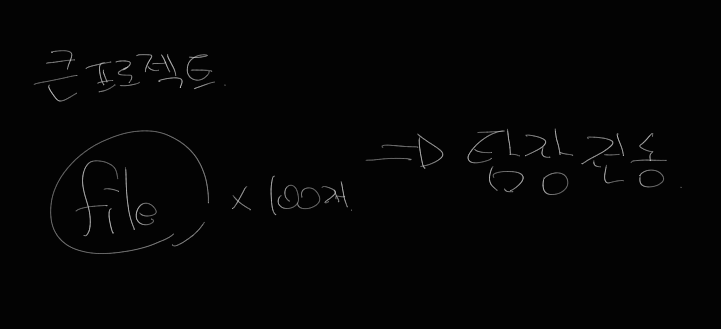 큰 프로젝트.
file x 100개. => 팀장전송.